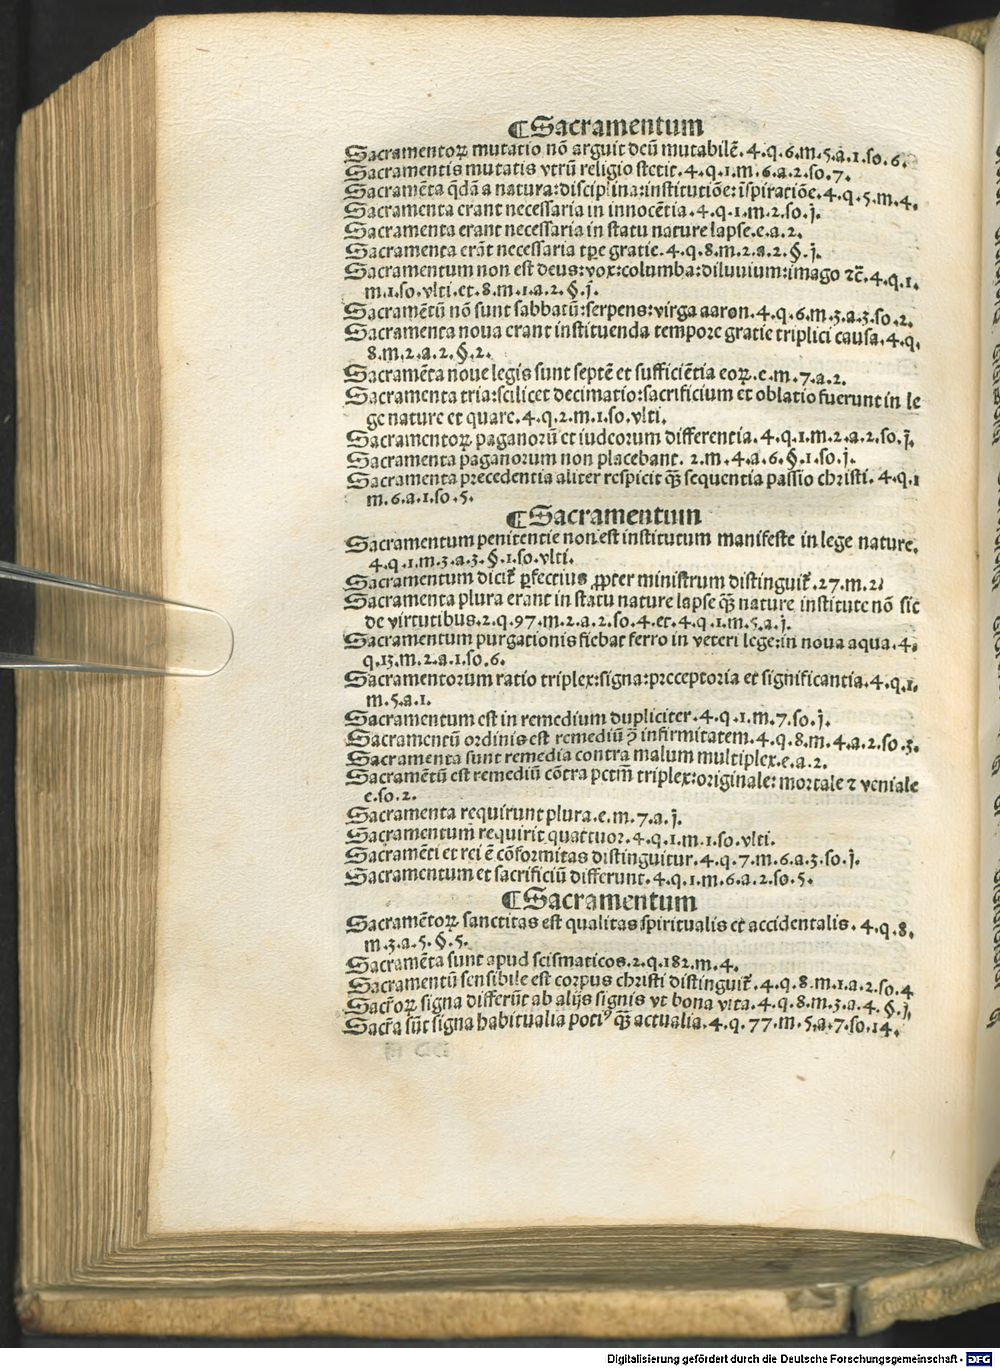 ¶Sacramentum
Sacramentoꝝ mutatio nō arguit deū mutabilē.4.q.6.m.5.a.1.ſo.6.
Sacramentis mutatis vtrū religio ſtetit.4.q.1.m.6.a.2.ſo.7.
Sacramēta q̄dā a natura:diſciplina:inſtitutiōe:īſpiratiōe.4.q.5.m.4.
Sacramenta erant neceſſaria in innocētia.4.q.1.m.2.ſo.j.
Sacramenta erant neceſſaria in ſtatu nature lapſe.e.a.2.
Sacramenta erāt neceſſaria tꝑe gratie.4.q.8.m.2.a.2.§.j.
Sacramentum non eſt deus:vox:columba:diluuium:imago ⁊c̄.4.q.1.
m.1.ſo.vlti.et.8.m.1.a.2.§.j.
Sacramētū nō ſunt ſabbatū:ſerpens:virga aaron.4.q.6.m.3.a.3.ſo.2.
Sacramenta noua erant inſtituenda tempore gratie triplici cauſa.4.q.
8.m.2.a.2.§.2.
Sacramēta noue legis ſunt ſeptē et ſufficiētia eoꝝ.e.m.7.a.2.
Sacramenta tria:ſcilicet decimatio:ſacrificium et oblatio fuerunt in le
ge nature et quare.4.q.2.m.1.ſo.vlti.
Sacramentoꝝ paganorū et iudeorum differentia.4.q.1.m.2.a.2.ſo.j.
Sacramenta paganorum non placebant. 2.m.4.a.6.§.1.ſo.j.
Sacramenta precedentia aliter reſpicit q̄ꝫ ſequentia paſſio chriſti. 4.q.1
m.6.a.1.ſo.5.
¶Sacramentum
Sacramentum penitentie non eſt inſtitutum manifeſte in lege nature.
4.q.1.m.3.a.3.§.1.ſo.vlti.
Sacramentum dicit᷑ ꝑfectius ꝓpter miniſtrum diſtinguit᷑.27.m.2.
Sacramenta plura erant in ſtatu nature lapſe q̄ꝫ nature inſtitute nō ſic
de virtutibus.2.q.97.m.2.a.2.ſo.4.et.4.q.1.m.5.a.j.
Sacramentum purgationis fiebat ferro in veteri lege:in noua aqua.4.
q.13.m.2.a.1.ſo.6.
Sacramentorum ratio triplex:ſigna:preceptoria et ſignificantia.4.q.1.
m.5.a.1.
Sacramentum eſt in remedium dupliciter.4.q.1.m.7.ſo.j.
Sacramentū ordinis eſt remediū ꝯ infirmitatem.4.q.8.m.4.a.2.ſo.3.
Sacramenta ſunt remedia contra malum multiplex.e.a.2.
Sacramētū eſt remediū cōtra pctm̄ triplex:originale: mortale ⁊ veniale
e.ſo.2.
Sacramenta requirunt plura.e.m.7.a.j.
Sacramentum requirit quattuor.4.q.1.m.1.ſo.vlti.
Sacramēti et rei ē cōformitas diſtinguitur.4.q.7.m.6.a.3.ſo.j.
Sacramentum et ſacrificiū differunt.4.q.1.m.6.a.2.ſo.5.
¶Sacramentum
Sacramētoꝝ ſanctitas eſt qualitas ſpiritualis et accidentalis.4.q.8.
m.3.a.5.§.5.
Sacramēta ſunt apud ſciſmaticos.2.q.182.m.4.
Sacramentū ſenſibile eſt corpus chriſti diſtinguit᷑.4.q.8.m.1.a.2.ſo.4
Sacr̄oꝝ ſigna differūt ab alijs ſignis vt bona vita.4.q.8.m.3.a.4.§.j.
Sacr̄a ſūt ſigna habitualia potiꝰ q̄ꝫ actualia.4.q.77.m.5.a.7.ſo.14.
Digitalisierung gefördert durch die Deutsche Forschungsgemeinschaft - DFG